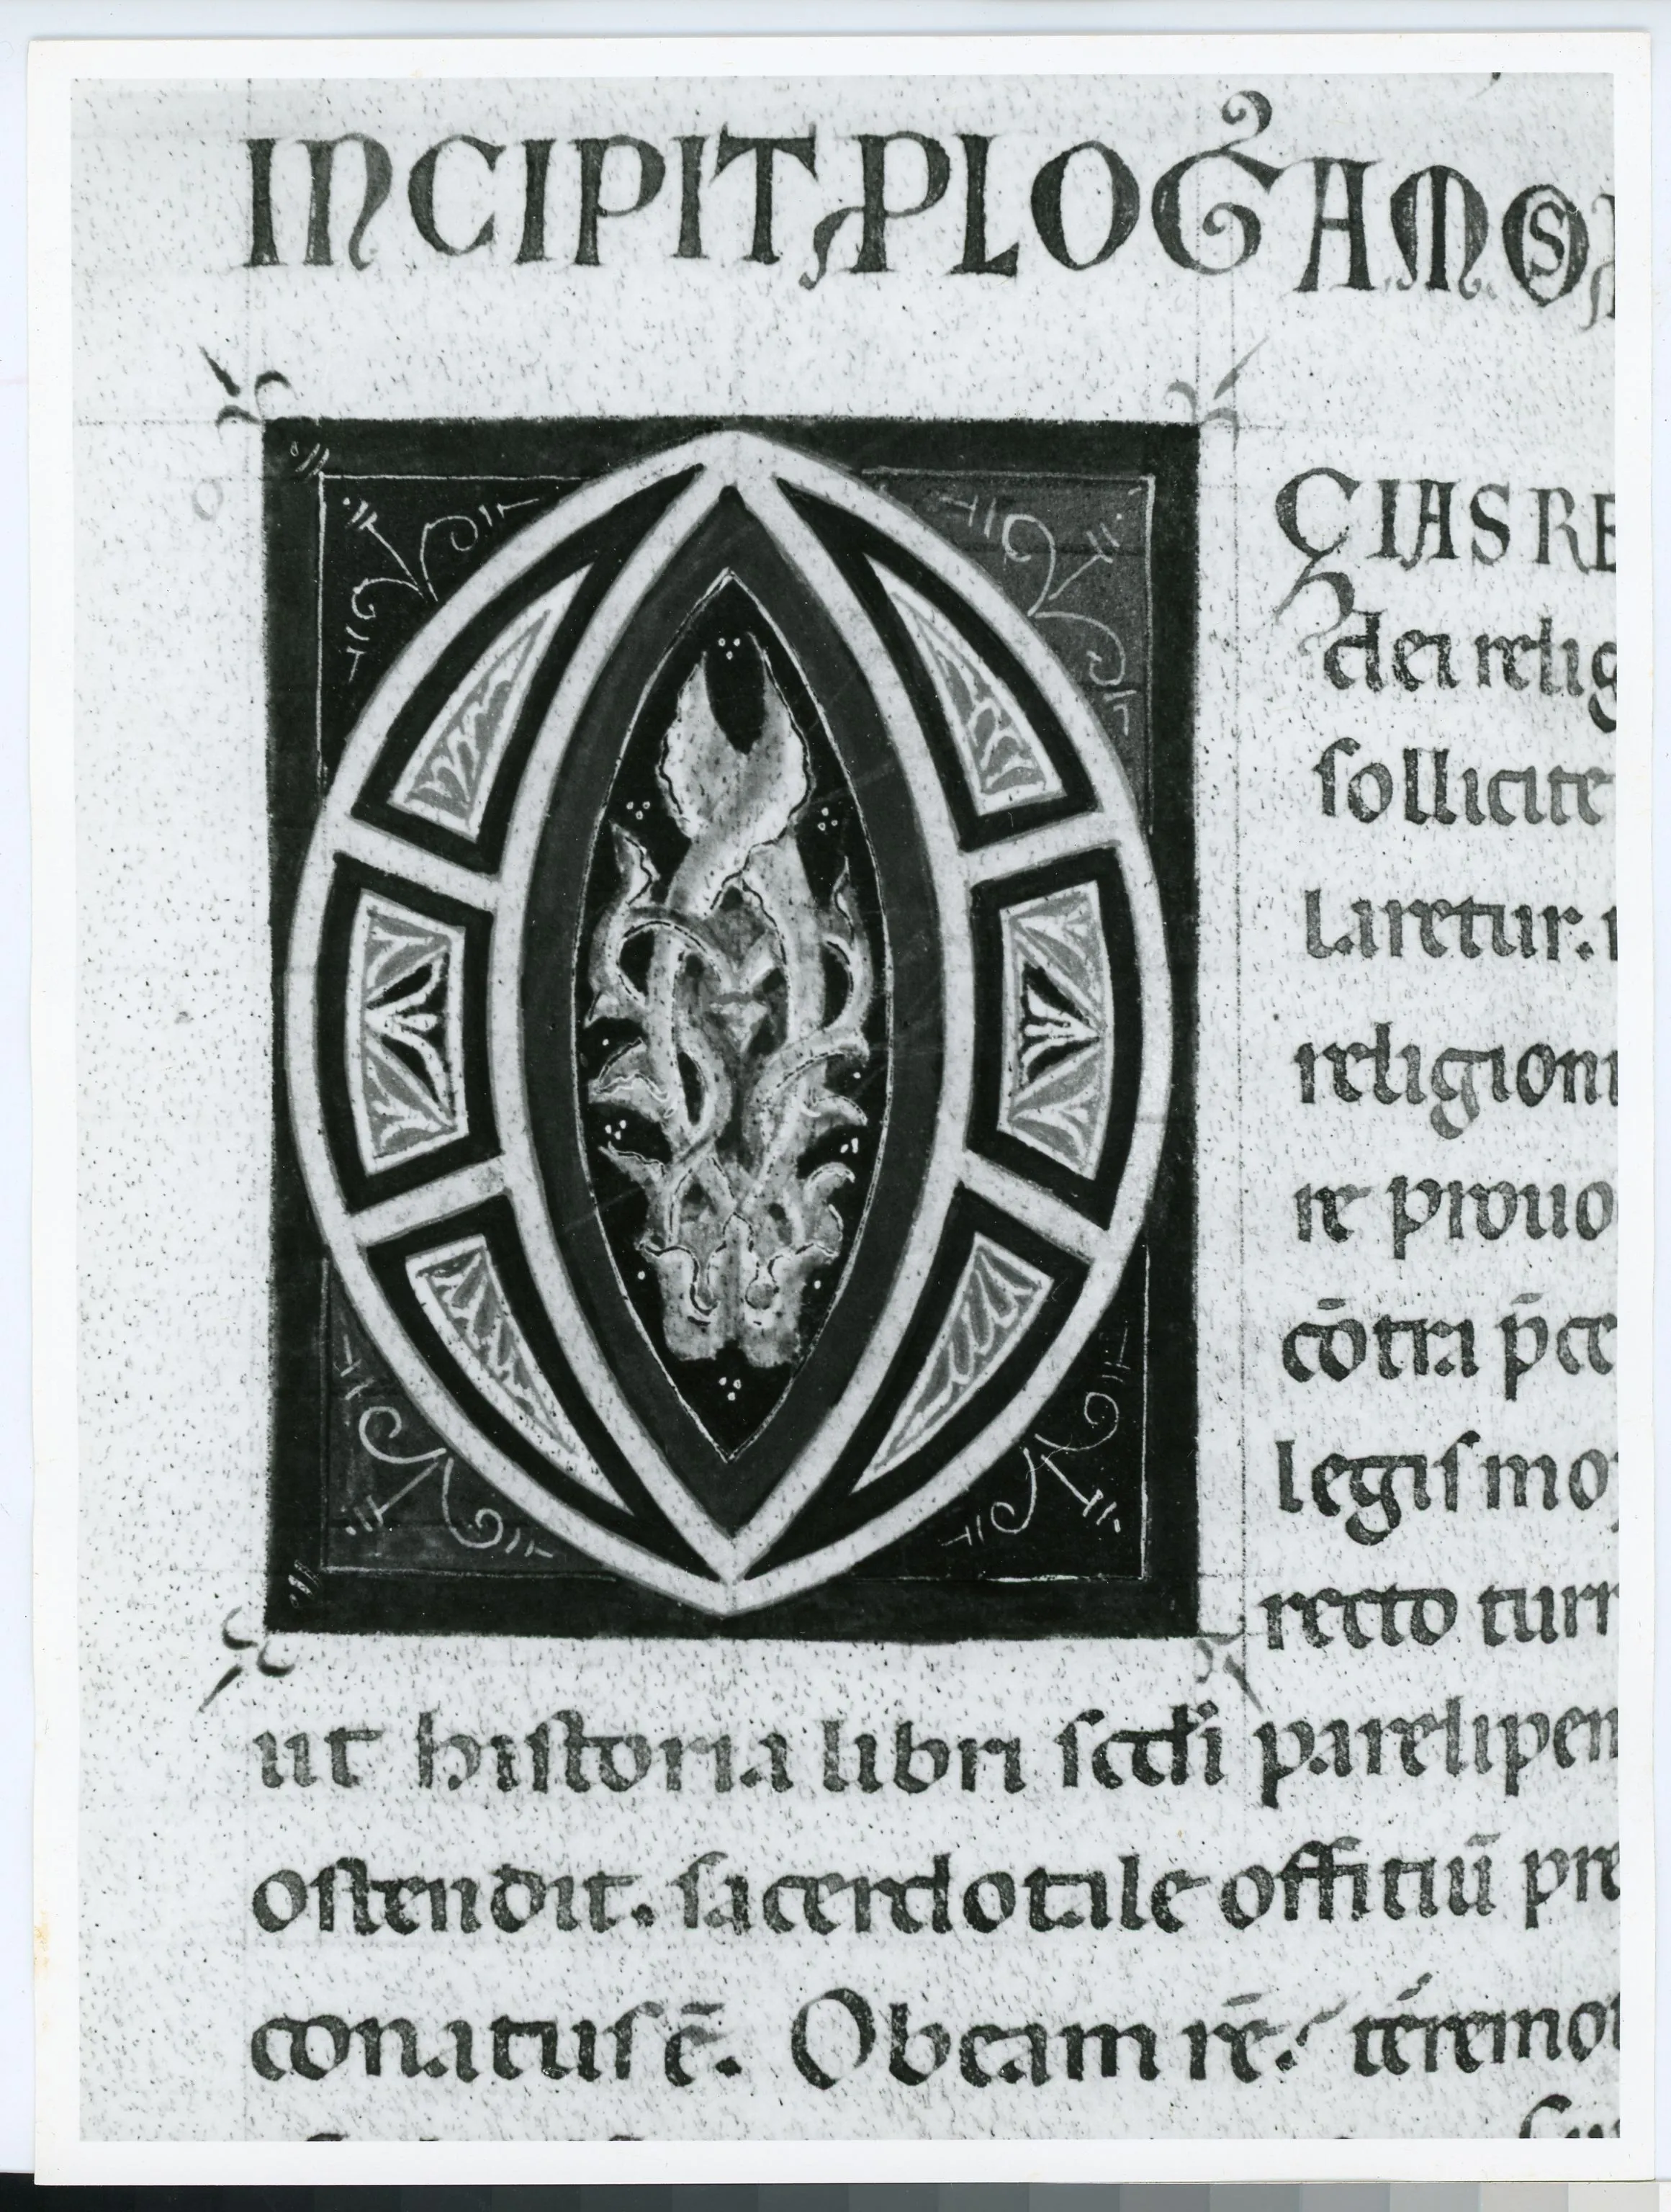 INCIPIT PLOG AMOS
O
CIAS RE
dei relig
sollicite
laretur.
religioni
re prouo
cōtra p̄ce
legis mo
recto turr
ut historia libri scdi paralipen
ostendit. sacerdotale offitiū pre
conatus ē. Ob eam rē.